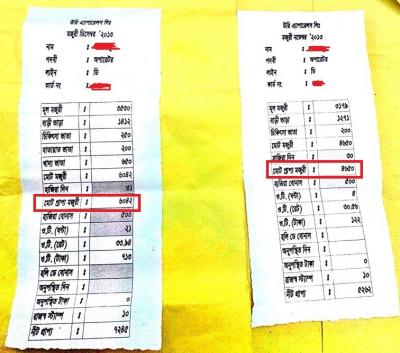 টরি এ্যাপারেলস লিঃ
মজুরী ডিসেম্বর '২০১৩
নাম :
পদবী : অপারেটর
লাইন : ডি
কার্ড নং :
মূল মজুরী : ৩৫৩০
বাড়ী ভাড়া : ১৪১২
চিকিৎসা ভাতা : ২৫০
যাতায়াত ভাতা : ২০০
খাদ্য ভাতা : ৬৫০
মোট মজুরী : ৬০৪২
হাজিরা দিন : ৩১
মোট প্রাপ্য মজুরী : ৬০৪২
হাজিরা বোনাস : ৫০০
ও.টি. (ঘন্টা) : ২১
ও.টি. (রেট) : ৩৩.৯৪
ও.টি. (টাকা) : ৭১৩
হলি ডে বোনাস :
অনুপস্থিত দিন :
অনুপস্থিত টাকা : ০
রাজস্ব স্ট্যাম্প : ১০
নীট প্রাপ্য : ৭২৪৫
টরি এ্যাপারেলস লিঃ
মজুরী নভেম্বর '২০১৩
নাম :
পদবী : অপারেটর
লাইন : ডি
কার্ড নং :
মূল মজুরী : ৩১৭৯
বাড়ী ভাড়া : ১২৭১
চিকিৎসা ভাতা : ২০০
মোট মজুরী : ৪৬৫০
হাজিরা দিন : ৩০
মোট প্রাপ্য মজুরী : ৪৬৫০
হাজিরা বোনাস : ৫০০
ও.টি. (ঘন্টা) : ৪
ও.টি. (রেট) : ৩০.৫৬
ও.টি. (টাকা) : ১২২
হলি ডে বোনাস
অনুপস্থিত দিন
অনুপস্থিত টাকা : ০
রাজস্ব স্ট্যাম্প : ১০
নীট প্রাপ্য : ৫২৬২